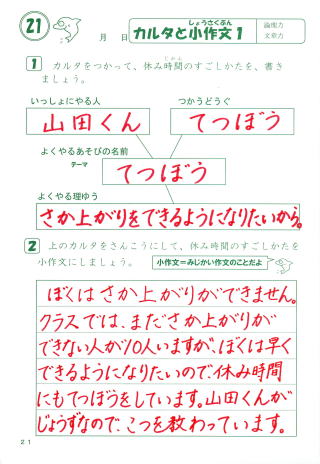 21
月 日
しょうさくぶん
カルタと小作文1
論理力
文章力
1 カルタをつかって、休み時間のすごしかたを、書き
じかん
ましょう。
いっしょにやる人
つかうどうぐ
山田くん
てつぼう
よくやるあそびの名前
テーマ
てつぼう
よくやる理ゆう
さか上がりをできるようになりたいから。
2 上のカルタをさんこうにして、休み時間のすごしかたを
小作文にしましょう。
小作文=みじかい作文のことだよ
ぼくはさか上がりができません。
クラスでは、まださか上がりが
できない人が10人いますが、ぼくは早く
できるようになりたいので、休み時間
にもてつぼうをしています。山田くんが
じょうずなので、こつを教わっています。
21